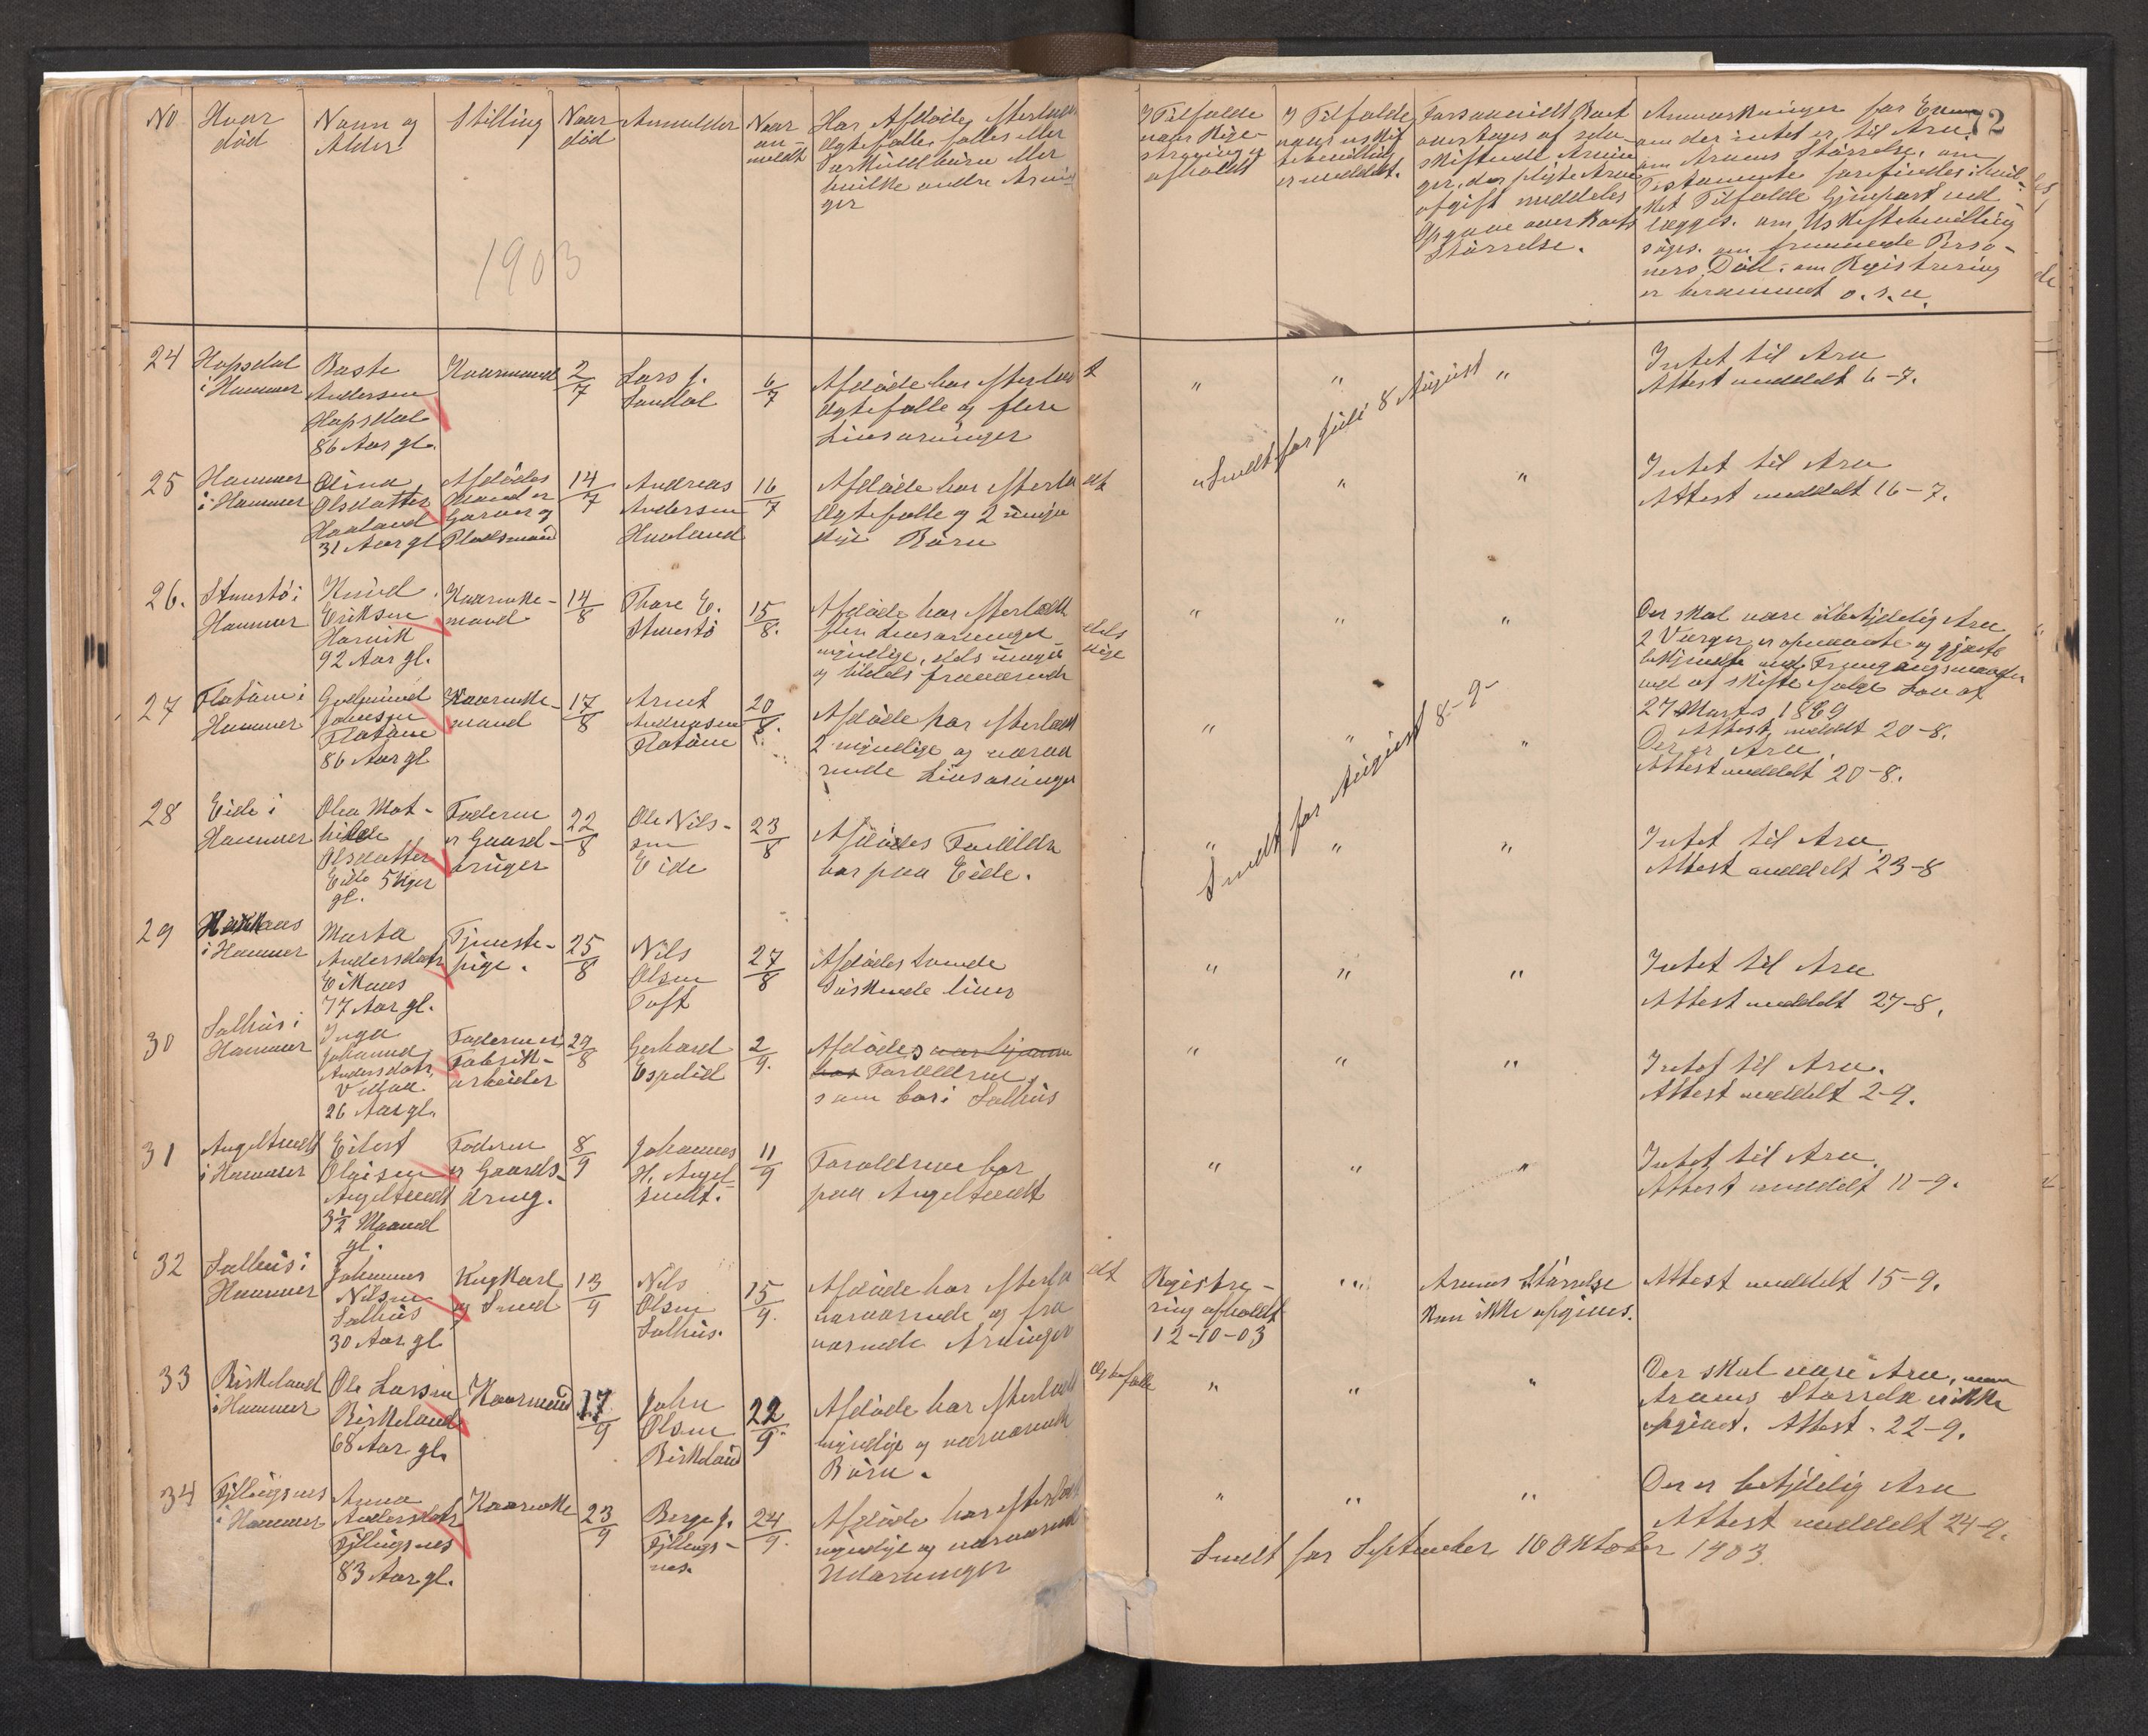 No
Hvor
död
Navn og
Alder
Stilling
Naar
död
Anmelder
Naar
an-
meldt
Har Afdöde efterladt
Ægtefælle, fælles eller
Særkuldbörn eller
hvilke andre Arvin
ger
1903
I Tilfælde
naar Regi-
strering er
afholdt
I Tilfælde
naar uskif
tebevilling
er meddelt.
Forsaavidt Boet
overtages af selv
skiftende Arvin
ger, der pligte Arve
afgift meddeles
Opgave over Boets
Störrelse.
Anmærkninger for Exem
om der intet er til Arv.
om Arvens Störrelse, om
Testamente forefindes i hvil-
ket Tilfælde Gjenpart ved
lægges. om Uskiftebevilling
söges. om fremmede Perso-
ners Död. om Registrering
er berammet o. s. v.
72
24
Hopsdal
i Hammer
Baste
Andersen
Hopsdal
86 Aar gl.
Kaarmand
2/7
Lars J.
Sandal
6/7
Afdöde har efterladt
Ægtefælle og flere
Livsarvinger
" " "
Intet til Arv
Attest meddelt 6-7.
Sendt for Juli 8 August
25
Hammer
i Hammer
Olina
Olsdatter
Haaland
31 Aar gl
Afdödes
Mand er
Garver og
Pladsmand
14/7
Andreas
Andersen
Haaland
16/7
Afdöde har efterladt
Ægtefælle og 2 umyn
dige Börn
" " "
Intet til Arv
Attest meddelt 16-7.
26.
Stuestö i
Hammer
Knud
Eriksen
Harvik
92 Aar gl.
Kaarenke-
mand
14/8
Thore E.
Stuestö
15/8.
Afdöde har efterladt
flere Livsarvinger dels
myndige, dels umyndige
og tildels fraværende
" " "
Der skal være ubetydelig Arv
2 Værger er opnævnte og gjorte
bekjendte med Fremgangsmaaden
ved at skifte ifölge Lov af
27 Marts 1869
Attest meddelt 20-8.
27
Flatöen i
Hammer
Gudmund
Johnsen
Flatöen
86 Aar gl
Kaarenke-
mand
17/8
Arent
Andreasen
Flatöen
20/8.
Afdöde har efterladt
2 myndige og nærvæ
rende Livsarvinger
" " "
Der er Arv
Attest meddelt 20-8.
Sendt for August 8-9-
28
Eide i
Hammer
Olea Mat-
hilde
Olsdatter
Eide 5 Uger
gl.
Faderen
er Gaard-
bruger
22/8
Ole Nils-
sen
Eide
23/8
Afdödes Forældre
bor paa Eide.
" " "
Intet til Arv
Attest meddelt 23-8
29
i Hammer
Marta
Andersdatr
Eiknes
77 Aar gl.
Tjeneste-
pige.
25/8
Nils
Olsen
Toft
27/8
Afdödes
Söskende lever
" " "
Intet til Arv
Attest meddelt 27-8.
30
Salhus i
Hammer
Inga
Johanna
Andersdatr.
26 Aar gl.
Faderen er
Fabrik-
arbeider
29/8
Gerhard
Espelid
2/9.
Afdödes var hjemme
hos Forældrene,
som bor i Salhus
" " "
Intet til Arv.
Attest meddelt 2-9.
31
Angeltveidt
i Hammer
Eilert
Olaisen
Angeltveidt
3½ Maaned
gl.
Faderen
er Gaards-
brug.
8/9
Johannes
H. Angel-
tveidt.
11/9
Forældrene bor
paa Angeltveidt
" " "
Intet til Arv.
Attest meddelt 11-9.
32
Salhus i
Hammer
Johannes
Nilsen
Salhus
30 Aar gl
Ungkarl
og Smed
13/9
Nils
Olsen
Salhus.
15/9.
Afdöde har efterladt
nærværende og fra
værende Arvinger
Registre-
ring afholdt
12-10-03
"
Arvens Störrelse
kan ikke opgives.
Attest meddelt 15-9.
33
Birkeland
i Hammer
Ole Larsen
Birkeland
68 Aar gl.
Kaarmand
17/9
John
Olsen
Birkeland
22/9.
Afdöde har efterladt Ægtefælle
myndige og nærværende
Börn.
" " "
Der skal være Arv, men
Arvens Störrelse er ikke
opgivet. Attest. 22-9.
34
Fyllingsnes
i Hammer
Anna
Andersdatr
Fyllingsnes
83 Aar gl.
Kaarenke
23/9
Berge J.
Fyllings-
nes.
24/9.
Afdöde har efterladt
myndige og nærværende
Udarvinger
" " "
Der er betydelig Arv
Attest meddelt 24-9.
Sendt for September 10 Oktober 1903.